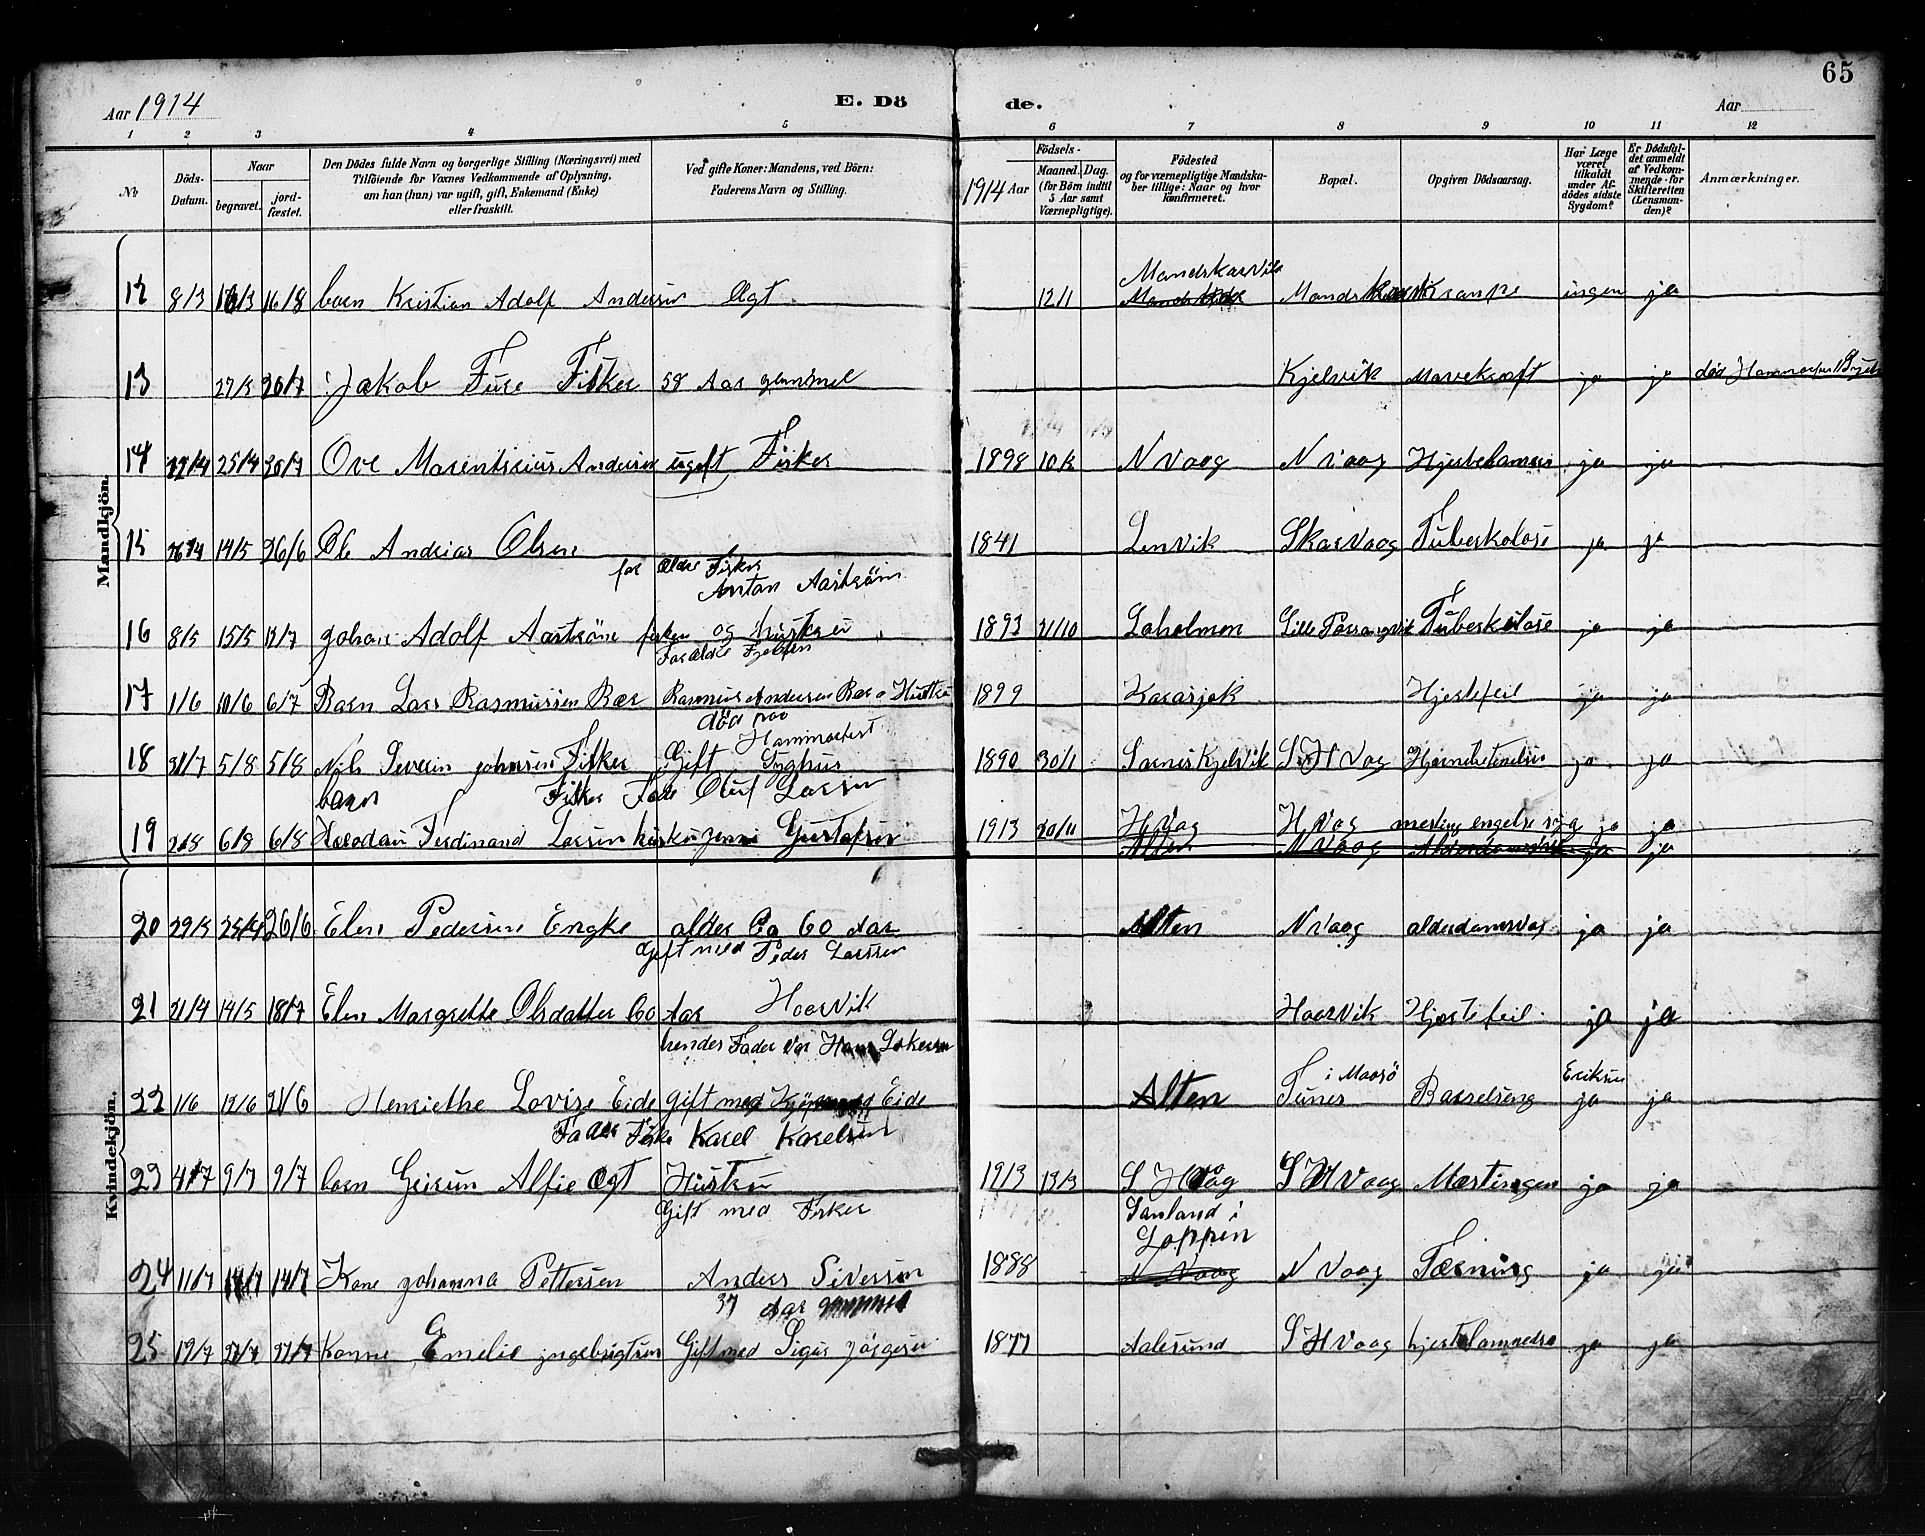 65
Aar 1914
E. Dö de.
Aar
1 2 3 4 5 6 7 8 9 10 11 12
No
Döds-Datum.
Naar
begravet.
jordfæstet.
Den Dödes fulde Navn og borgerlige Stilling (Næringsvei) med Tilföiende for Voxnes Vedkommende af Oplysning, om han (hun) var ugift, gift, Enkemand (Enke) eller fraskilt.
Ved gifte Koner: Mandens, ved Börn: Faderens Navn og Stilling.
Födsels-
1914 Aar
Maaned. Dag. (for Börn indtil 5 Aar samt Værnepligtige).
Födested og for værnepligtige Mandskaber tillige: Naar og hvor konfirmeret.
Bopæl.
Opgiven Dödsaarsag.
Har Læge været tilkaldt under Afdödes sidste Sygdom?
Er Dödsfaldet anmeldt af Vedkommende for Skifteretten (Lensmanden)?
Anmærkninger.
Mandkjön.
12 8/3 16/3 16/8 barn Kristian Adolf Andersen Ægt 12/1 Mandskarvik Krampe ingen ja
13 27/3 20/7 Jakob Fure Fisker 58 Aar gammel Kjelvik Mavekræft ja ja död Hammerfest
14 22/4 25/4 30/7 Ove Andersen ugift Fisker 1898 N Vaag N Vaag ja ja
15 26/4 14/5 26/6 Ole Andrias Olsen 1841 Lenvik Skarvaag Tuberkolose ja ja
for ældre Fisker
Anton Aaström
16 8/5 15/5 12/7 Johan Adolf Aaström fisker og hustru 1893 21/10 Loholmen Lille Tuberkolose ja ja
Forældre
17 1/6 10/6 6/7 Barn Lars Rasmussen Bær Rasmus Andersen Bær o Hustru 1899 Karasjok Hjertefeil ja ja
död paa
Hammerfest
18 31/7 5/8 5/8 Nils Severin Johnsen Fisker Gift Syghus 1890 30/1 Sarnes Kjelvik S H Vaag ja ja
barn Fisker Fader Oluf Larsen
19 2/8 6/8 6/8 Ferdinand Larsen hustru Jenni Gustafsen 1913 20/11 H Vaag H Vaag engelse syg ja ja
Alten N Vaag ja ja
Kvindekjön.
20 29/3 25/4 26/6 Elen Pedersen Engke alder Ca 60 Aar Alten N Vaag alderdomsvag ja ja
Gift med Peder Larssen
21 21/4 14/5 18/7 Elen Margrethe Olsdatter 60 Aar Hoarvik Hoarvik Hjertefeil ja ja
hendes Fader var Hans
22 1/6 12/6 21/6 Henriethe Lovise Eide gift med Eide Alten Tunes i Maasö Barselseng Eriksen ja ja
Fader Fisker Karel Karelsen
23 4/7 9/7 9/7 barn Alfie Ægt Hustru 1913 13/3 S H Vaag S H Vaag Mæslingen ja ja
Gift med Fisker
Sanland i
Loppen
24 11/7 14/7 14/7 Kone Johanna Pettersen Anders Siversen 1888 N Vaag N Vaag Tæring ja ja
37 Aar gammel
25 19/7 27/7 27/7 Konne Emelie Ingebrigtsen Gift med Jörgensen 1877 Aalesund S H Vaag ja ja